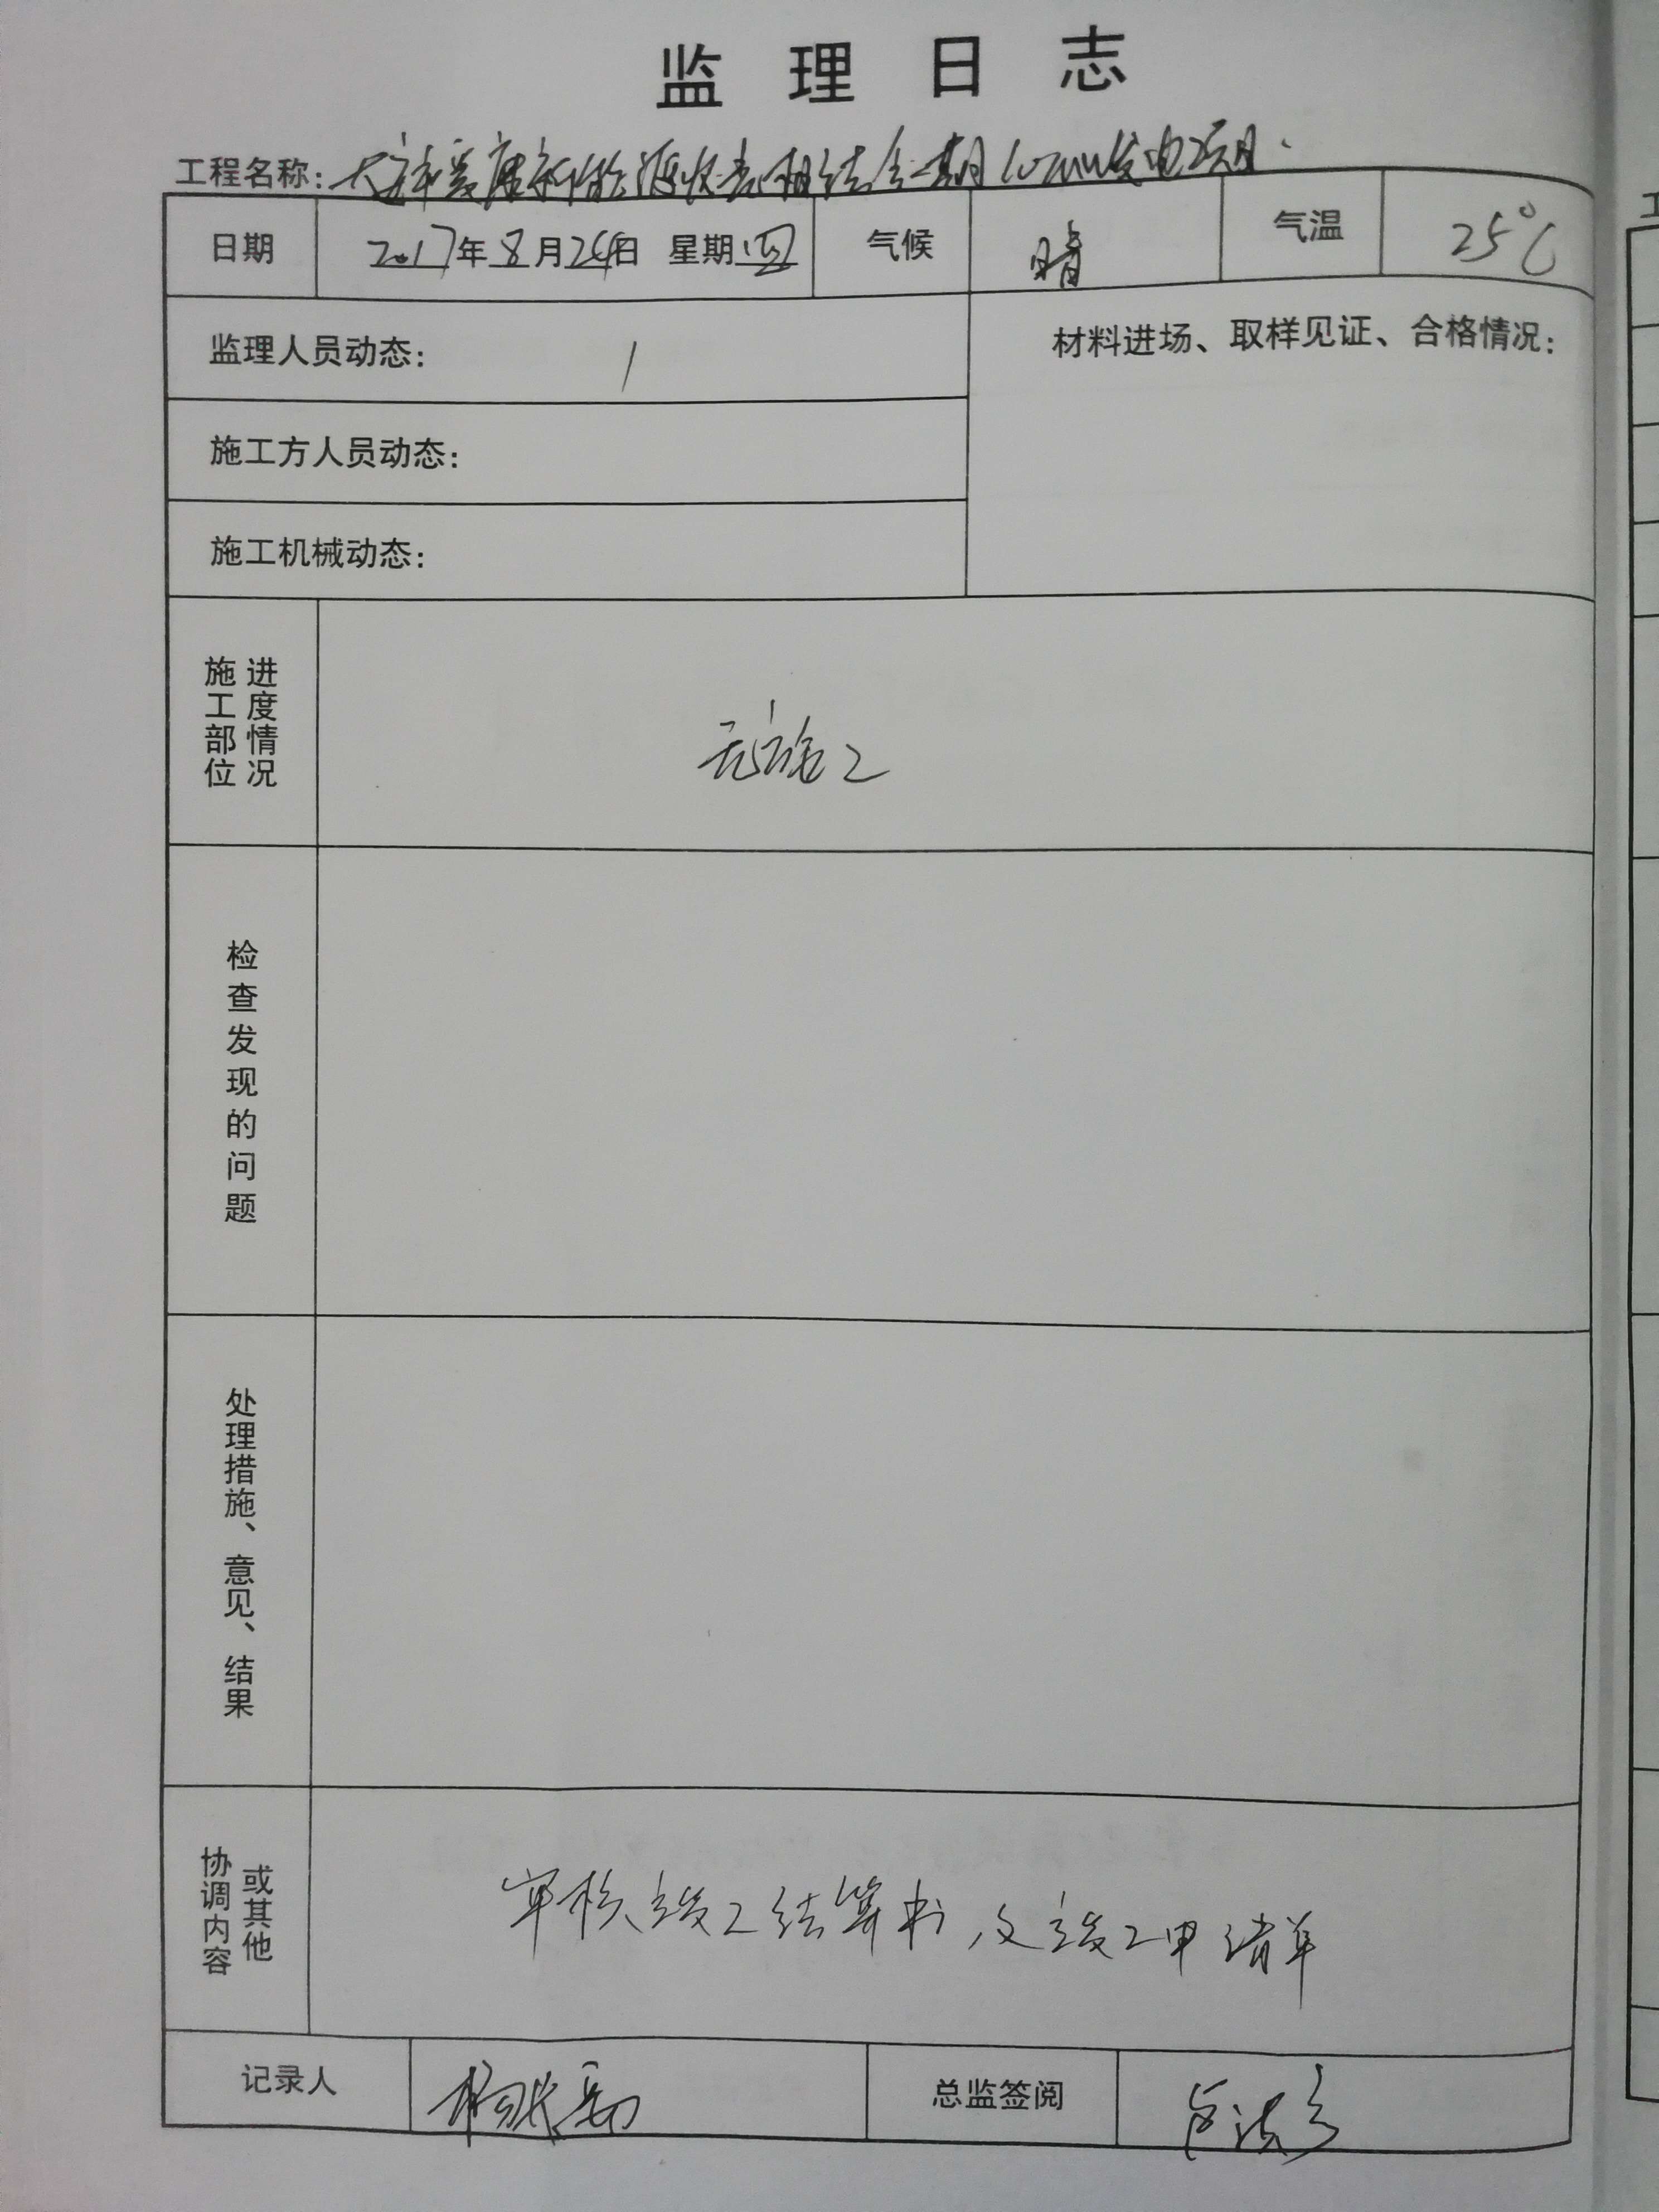 监理日志
工程名称: 新能源 相结合一期 发电项目
日期 2017年8月24日 星期四 气候 晴 气温 25℃
监理人员动态: /
材料进场、取样见证、合格情况:
施工方人员动态:
施工机械动态:
施工部位 进度情况
无施工
检查发现的问题
处理措施、意见、结果
协调内容 或其他
审核竣工结算书及竣工申请单
记录人
总监签阅
工